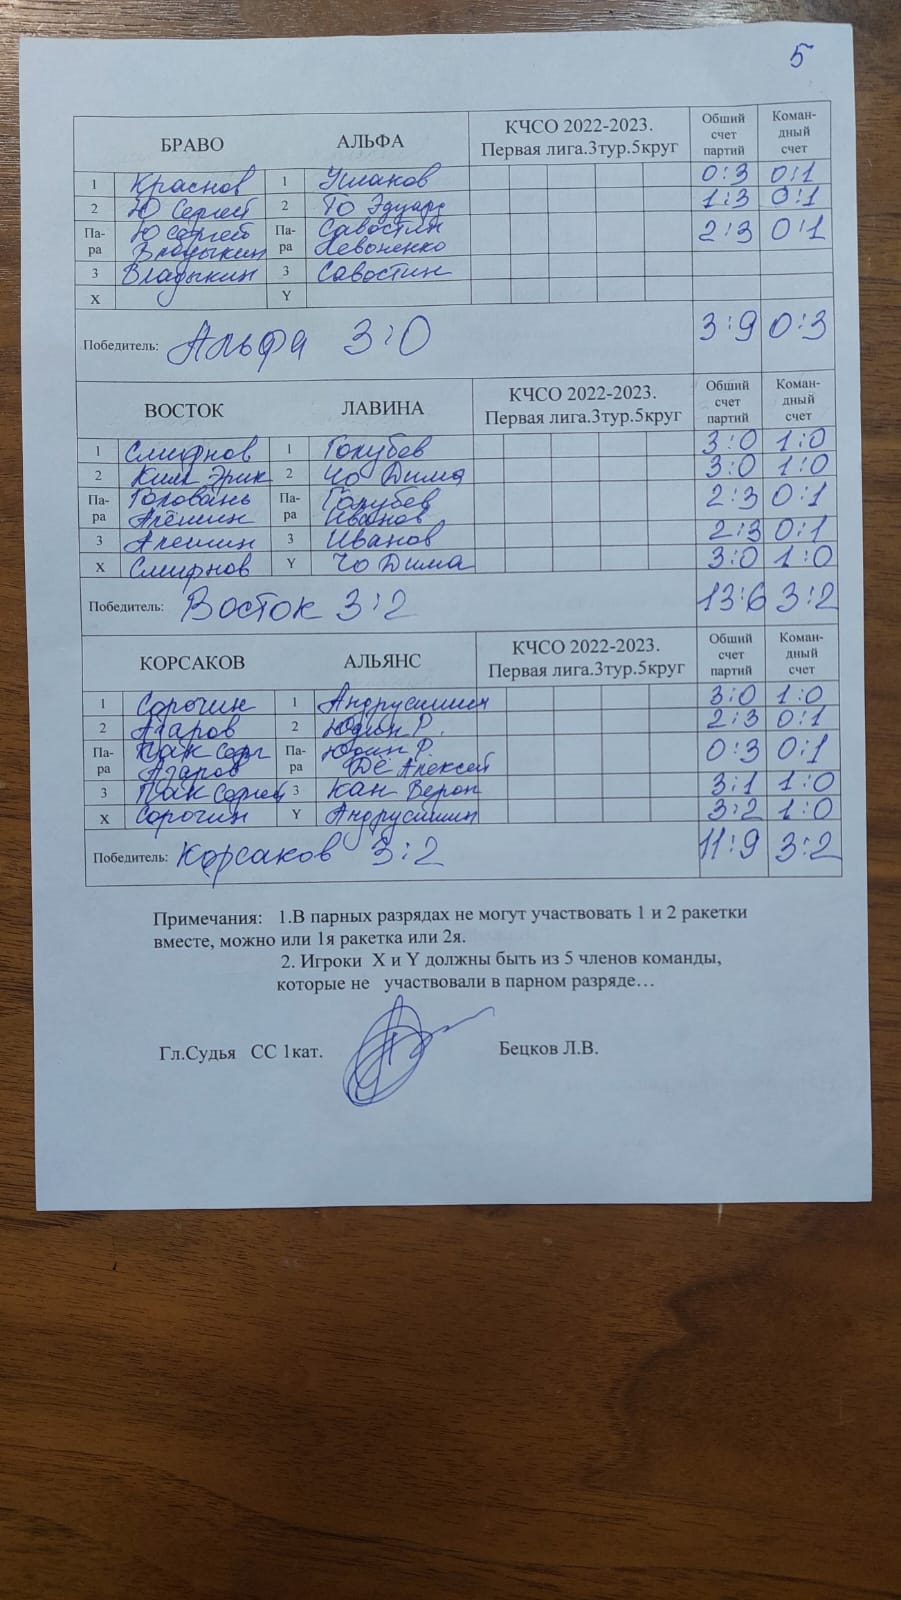 5
БРАВО АЛЬФА КЧСО 2022-2023. Первая лига.3тур.5круг Обший счет партий Коман-дный счет
1 Краснов 1 Ушаков 0:3 0:1
2 Ю Сергей 2 То Эдуард 1:3 0:1
Па-ра Ю Сергей Па-ра Савостин 2:3 0:1
Владыкин Левоненко
3 Владыкин 3 Савостин
X Y
Победитель: Альфа 3:0 3:9 0:3
ВОСТОК ЛАВИНА КЧСО 2022-2023. Первая лига.3тур.5круг Обший счет партий Коман-дный счет
1 Смирнов 1 Голубев 3:0 1:0
2 Ким Эрик 2 Чо Дима 3:0 1:0
Па-ра Головань Па-ра Голубев 2:3 0:1
Алёшин Иванов
3 Алешин 3 Иванов 2:3 0:1
X Смирнов Y Чо Дима 3:0 1:0
Победитель: Восток 3:2 13:6 3:2
КОРСАКОВ АЛЬЯНС КЧСО 2022-2023. Первая лига.3тур.5круг Обший счет партий Коман-дный счет
1 Сорочин 1 Андрусишин 3:0 1:0
2 Азаров 2 Юдин Р. 2:3 0:1
Па-ра Пак Серг Па-ра Юдин Р. 0:3 0:1
Азаров Дё Алексей
3 Пак Сергей 3 Кан Верон 3:1 1:0
X Сорочин Y Андрусишин 3:2 1:0
Победитель: Корсаков 3:2 11:9 3:2
Примечания: 1.В парных разрядах не могут участвовать 1 и 2 ракетки
вместе, можно или 1я ракетка или 2я.
2. Игроки X и Y должны быть из 5 членов команды,
которые не участвовали в парном разряде…
Гл.Судья СС 1кат. Бецков Л.В.